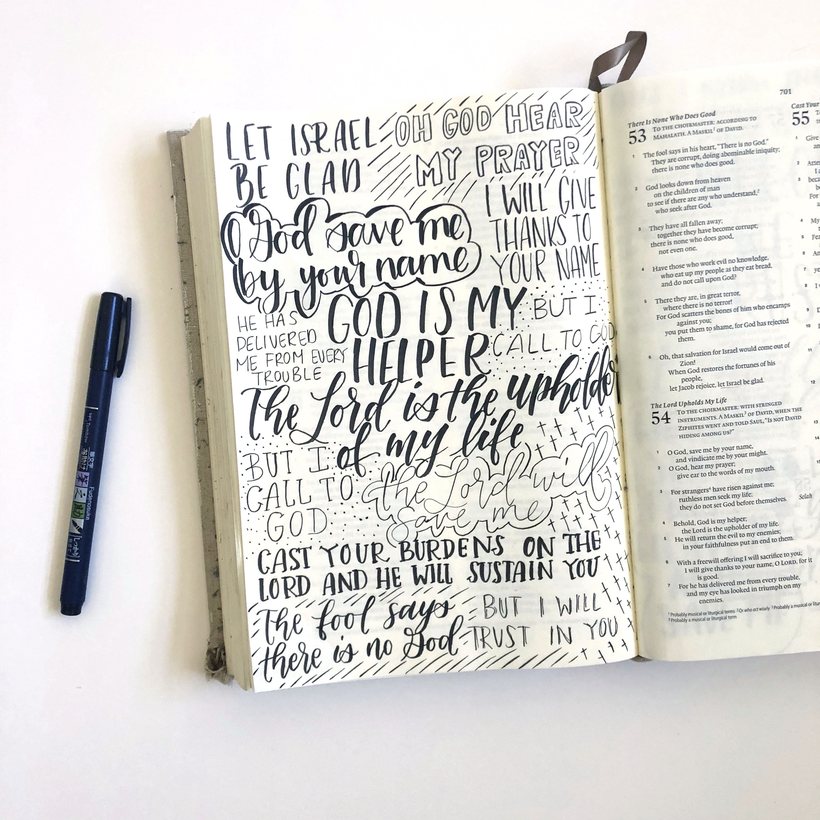 LET ISRAEL
BE GLAD
OH GOD HEAR
MY PRAYER
O God save me
by your name
I WILL GIVE
THANKS TO
YOUR NAME
HE HAS
DELIVERED
ME FROM EVERY
TROUBLE
GOD IS MY
HELPER
BUT I
CALL TO GOD
The Lord is the upholder
of my life
BUT I
CALL TO
GOD
the Lord will
save me
CAST YOUR BURDENS ON THE
LORD AND HE WILL SUSTAIN YOU
The fool says
there is no God
BUT I WILL
TRUST IN YOU
701
There Is None Who Does Good
53 TO THE CHOIRMASTER: ACCORDING TO
MAHALATH. A MASKIL¹ OF DAVID.
1 The fool says in his heart, "There is no God."
They are corrupt, doing abominable iniquity;
there is none who does good.
2 God looks down from heaven
on the children of man
to see if there are any who understand,²
who seek after God.
3 They have all fallen away;
together they have become corrupt;
there is none who does good,
not even one.
4 Have those who work evil no knowledge,
who eat up my people as they eat bread,
and do not call upon God?
5 There they are, in great terror,
where there is no terror!
For God scatters the bones of him who encamps
against you;
you put them to shame, for God has rejected
them.
6 Oh, that salvation for Israel would come out of
Zion!
When God restores the fortunes of his
people,
let Jacob rejoice, let Israel be glad.
The Lord Upholds My Life
54 TO THE CHOIRMASTER: WITH STRINGED
INSTRUMENTS. A MASKIL³ OF DAVID, WHEN THE
ZIPHITES WENT AND TOLD SAUL, "IS NOT DAVID
HIDING AMONG US?"
1 O God, save me by your name,
and vindicate me by your might.
2 O God, hear my prayer;
give ear to the words of my mouth.
3 For strangers⁴ have risen against me;
ruthless men seek my life;
they do not set God before themselves. Selah
4 Behold, God is my helper;
the Lord is the upholder of my life.
5 He will return the evil to my enemies;
in your faithfulness put an end to them.
6 With a freewill offering I will sacrifice to you;
I will give thanks to your name, O LORD, for it
is good.
7 For he has delivered me from every trouble,
and my eye has looked in triumph on my
enemies.
Cast Your
55
Fudenosuke